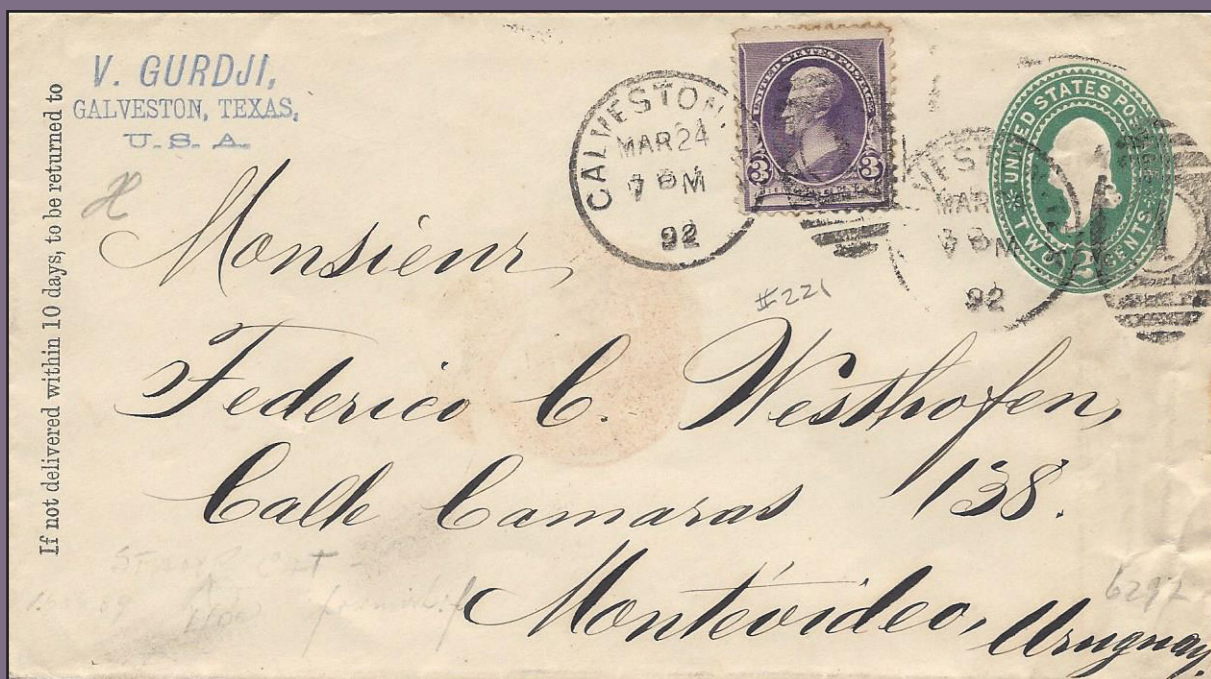 If not delivered within 10 days, to be returned to
V. GURDJI,
GALVESTON, TEXAS,
U. S. A.
GALVESTON.
MAR 24
7 PM
92
UNITED STATES POSTAGE
3 3
UNITED STATES POSTAGE
TWO 2 CENTS
VESTON
MAR 24
PM
92
1
Monsieur,
#221
Federico C. Westhofen,
Calle Camaras 138.
Montévideo, Uruguay.
STAMP CAT
6292